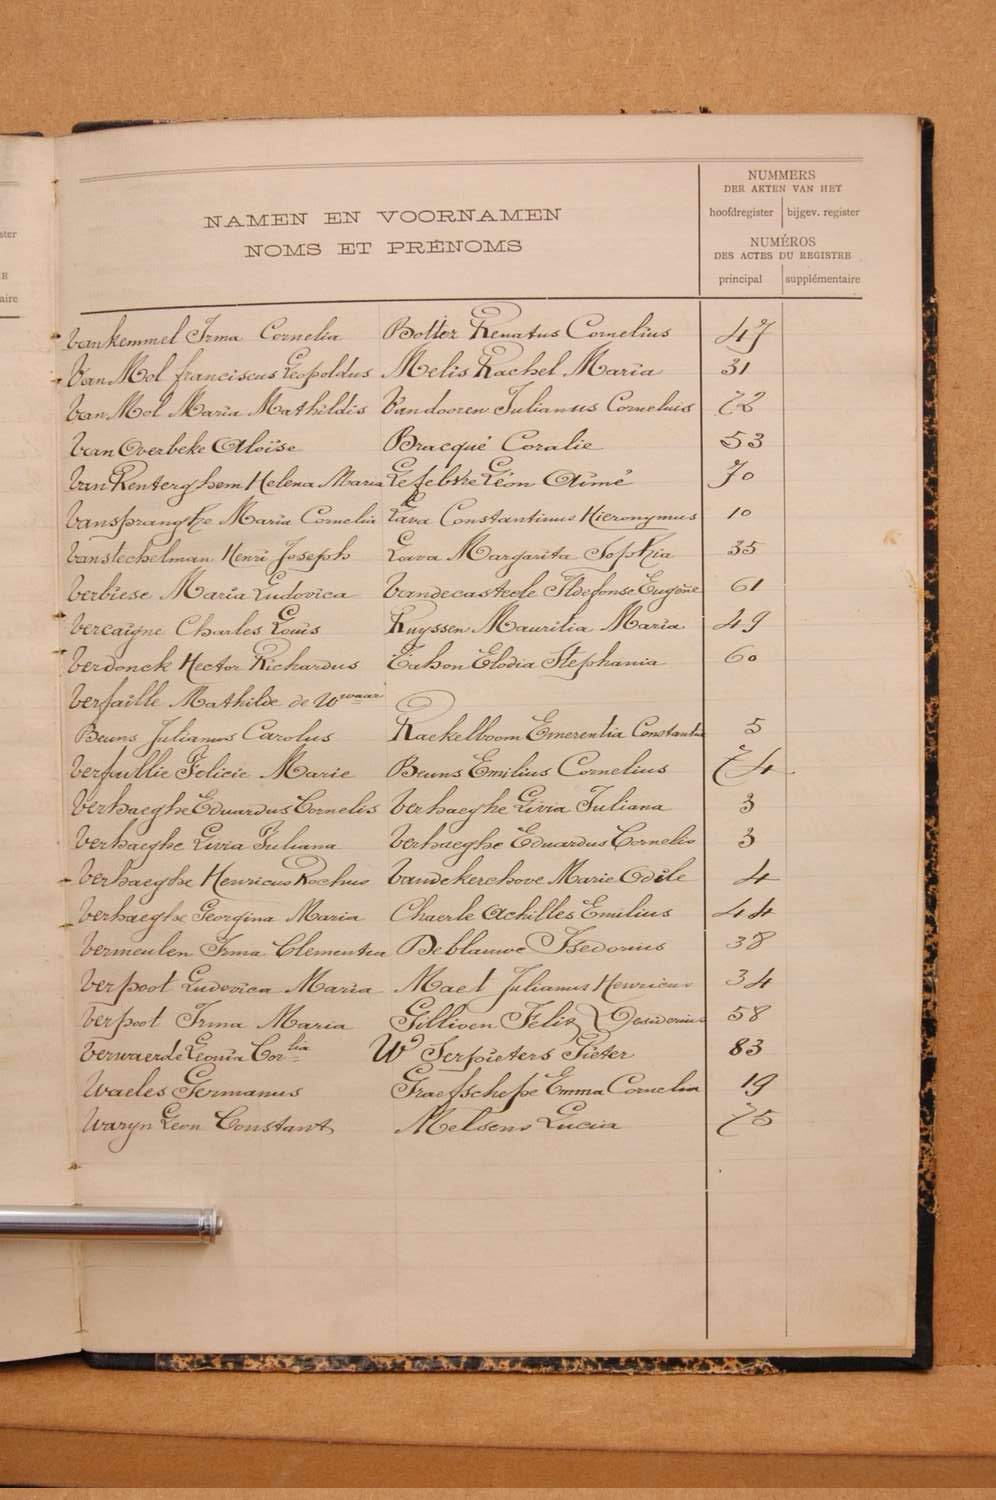 ster
E
aire
NUMMERS
DER AKTEN VAN HET
hoofdregister bijgev. register
NAMEN EN VOORNAMEN
NOMS ET PRÉNOMS
NUMÉROS
DES ACTES DU REGISTRE
principal supplémentaire
Vankemmel Irma Cornelia Botter Renatus Cornelius 47
Van Mol franciscus Leopoldus Melis Rachel Maria 31
Van Mol Maria Mathildis Vandooren Julianus Cornelius 72
Van Overbeke Aloïse Bracqué Coralie 53
Van Renterghem Helena Maria Lefebvre Léon Aimé 70
Vanspranghe Maria Cornelia Lava Constantinus Hieronymus 10
Vanstechelman Henri Joseph Lava Margarita Sophia 35
Verbiese Maria Ludovica Vandecasteele Ildefonse Eugène 61
Vercaigne Charles Louis Ruyssen Mauritia Maria 49
Verdonck Hector Richardus Cahon Elodia Stephania 60
Verfaille Mathilde de Wwaar
Beuns Julianus Carolus Raekelboom Emerentia Constantia 5
Verfaillie Felicie Marie Beuns Emilius Cornelius 74
Verhaeghe Eduardus Cornelis Verhaeghe Livia Juliana 3
Verhaeghe Livia Juliana Verhaeghe Eduardus Cornelis 3
Verhaeghe Henricus Rochus Vandekerchove Marie Odile 4
Verhaeghe Georgina Maria Chaerle Achilles Emilius 44
Vermeulen Irma Clementia Deblauwe Isedorius 38
Verpoot Ludovica Maria Maet Julianus Henricus 34
Verpoot Irma Maria Gillioen Felix Desiderius 58
Verwaerde Leonia Corlia Wo Serpieters Pieter 83
Waeles Germanus Graefschepe Emma Cornelia 19
Waryn Leon Constant Melsens Lucia 75